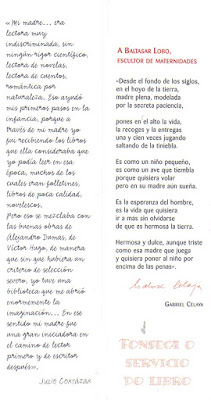 «Mi madre... era
lectora muy
indiscriminada, sin
ningún rigor científico,
lectora de novelas,
lectora de cuentos,
romántica por
naturaleza. Eso ayudó
mis primeros pasos en la
infancia, porque a
través de mi madre yo
fui recibiendo los libros
que ella consideraba que
yo podía leer en esa
época, muchos de los
cuales eran folletines,
libros de poca calidad,
novelescos.
Pero eso se mezclaba con
las buenas obras de
Alejandro Dumas, de
Víctor Hugo, de manera
que sin que hubiera un
criterio de selección
severo, yo tuve una
biblioteca que me abrió
enormemente la
imaginación... En ese
sentido mi madre fue
una gran iniciadora en
el camino de lector
primero y de escritor
después».
JULIO CORTÁZAR
A BALTASAR LOBO,
ESCULTOR DE MATERNIDADES
«Desde el fondo de los siglos,
en el hoyo de la tierra,
madre plena, modelada
por la secreta paciencia,
pones en el alto la vida,
la recoges y la entregas
una y cien veces jugando
saltando de la tiniebla.
Es como un niño pequeño,
es como un ave que tiembla
porque quisiera volar
pero en su madre aún sueña.
Es la esperanza del hombre,
es la vida que quisiera
ir a más sin olvidarse
de que es hermosa la tierra.
Hermosa y dulce, aunque triste
como esa madre que juega
y quisiera poner al niño por
encima de las penas».
GABRIEL CELAYA
FONSEGI O
SERVICIO
DO LIBRO